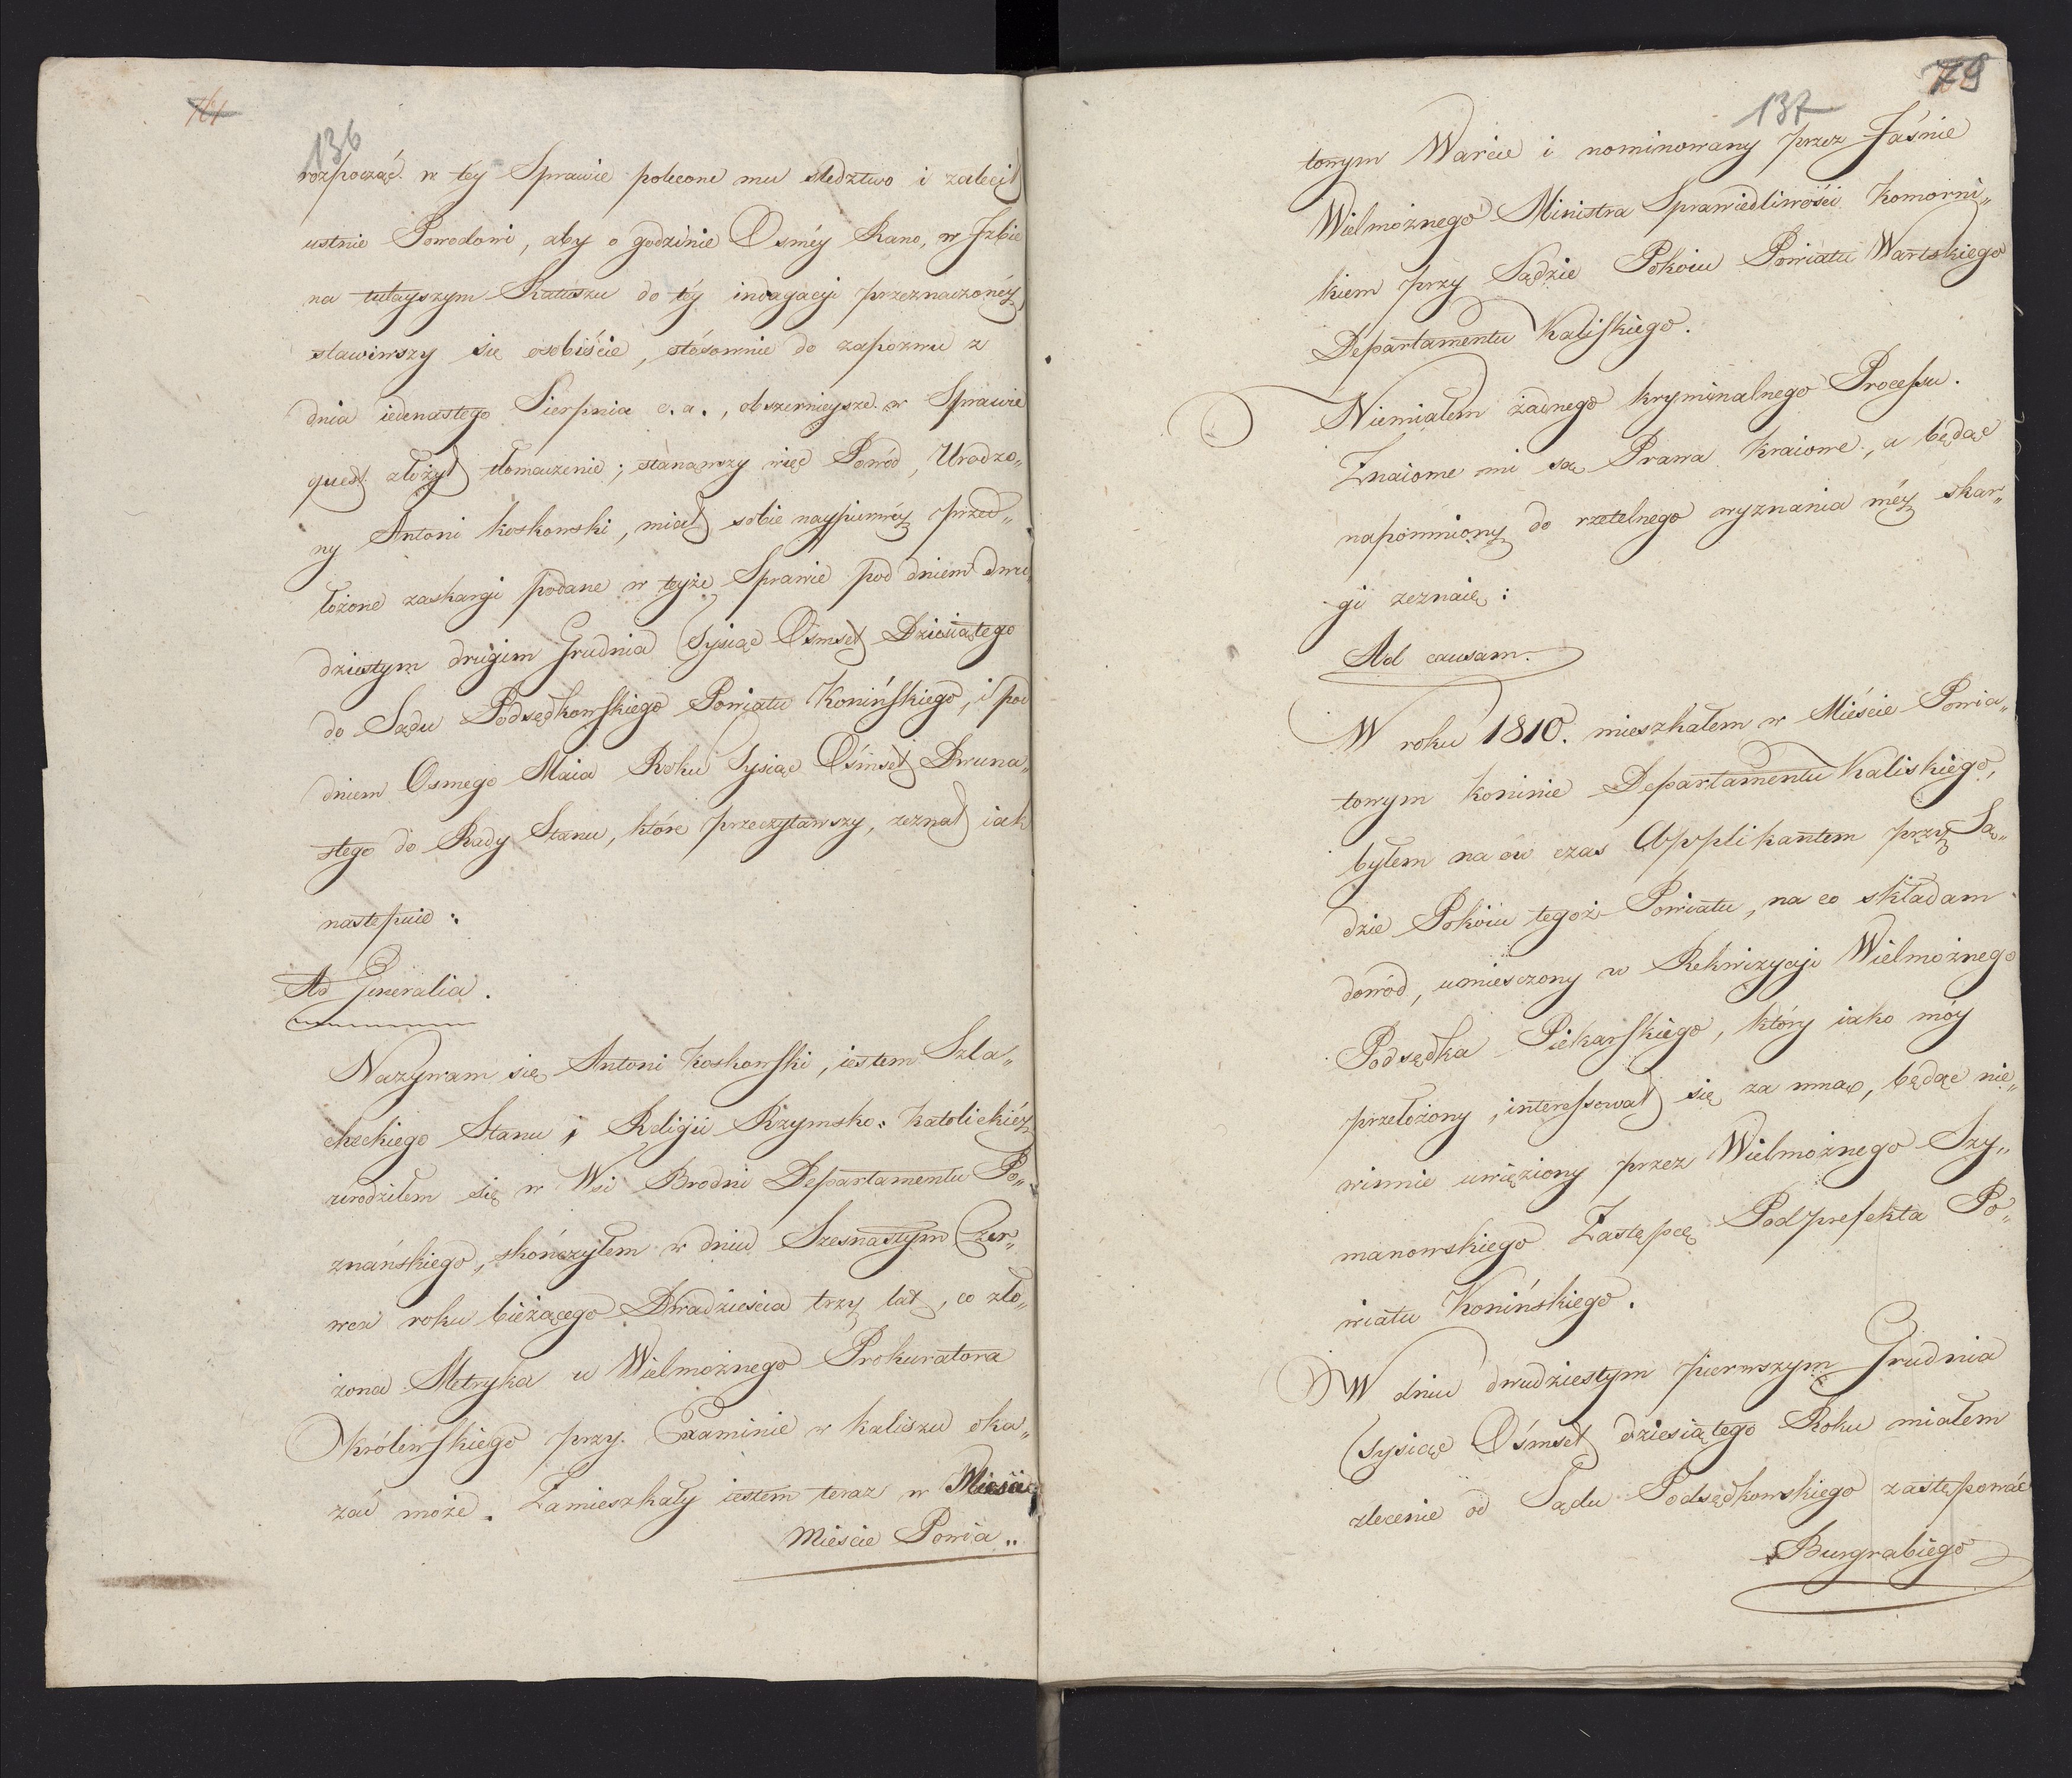 136
rozpocząć w tey Sprawie polecone mu sledztwo i zalecił
ustnie Powodowi, aby o godzinie Osméy Rano, w Izbie
na tutayszym Ratuszu do téy indagacyi przeznaczonéy
stawiwszy się osobiście, stósownie do zapozwu z
dnia iedenastego Sierpnia c. a., obszernieysze w Sprawie
quest. złożył tłomaczenie; stanąwszy więc Powód, Urodzo„
ny Antoni Koskowski, miał sobie naypierwéy przed„
łożone zaskargi podane w teyże Sprawie pod dniem dwu„
dziestym drugim Grudnia Tysiąc Ośmset Dziesiątego
do Sądu Podsędkowskiego Powiatu Konińskiego, i pod
dniem Osmego Maia Roku Tysiąc Ośmset Dwuna„
stego do Rady Stanu, które przeczytawszy, zeznał iak
następuie:
Ad Generalia.
Nazywam się Antoni Koskowski, iestem Szla„
checkiego Stanu i Religii Rzymsko: Katolickiéy
urodziłem się w Wsi Brodni Departamentu Po„
znańskiego, skończyłem w dniu Szesnastym Czer„
wca roku bieżącego Dwadzieścia trzy lat, co zło„
żona Metryka u Wielmożnego Prokuratora
Królińskiego przy Examinie w Kaliszu oka„
zać może. Zamieszkały iestem teraz w Mieście
Mieście Powia„
79
137
towym Warcie i nominowany przez Jaśnie
Wielmożnego Ministra Sprawiedliwości Komorni„
kiem przy Sądzie Pokoiu Powiatu Wartskiego
Departamentu Kaliskiego.
Niemiałem żadnego kryminalnego Processu.
Znaiome mi są Prawa Kraiowe, a będąc
napomniony do rzetelnego wyznania méy skar„
gi zeznaię:
Ad causam.
W roku 1810. mieszkałem w Mieście Powia„
towym Koninie Departamentu Kaliskiego,
byłem na ów czas Applikantem przy Są„
dzie Pokoiu tegoż Powiatu, na co składam
dowód, umiesczony w Rekwizycyi Wielmożnego
Podsędka Piekarskiego, który iako móy
przełożony, interessował się za mną, będąc nie„
winnie uwięziony przez Wielmożnego Szy„
manowskiego Zastępcę Podprefekta Po„
wiatu Konińskiego.
W dniu dwudziestym pierwszym Grudnia
Tysiąc Ośmset dziesiątego Roku miałem
zlecenie od Sądu Podsędkowskiego zastępować
Burgrabiego